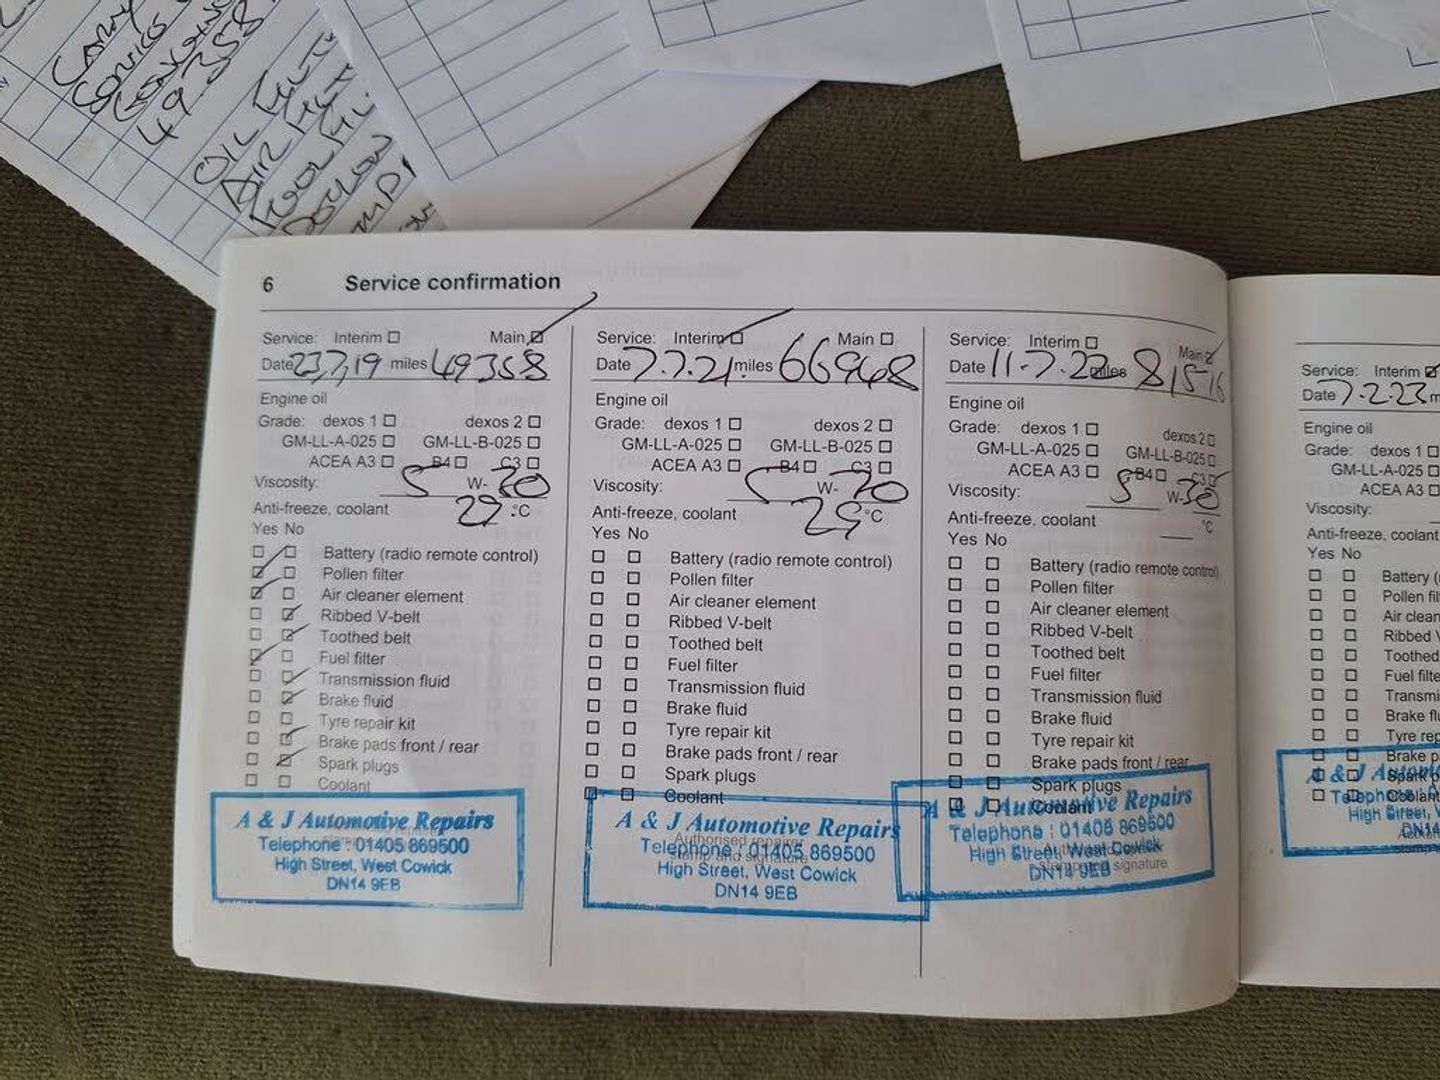 49358
OIL
AIR
6 Service confirmation
Service: Interim Main
Date 23,7,19 miles 49358
Engine oil
Grade: dexos 1 dexos 2
GM-LL-A-025 GM-LL-B-025
ACEA A3 B4 C3
Viscosity: 5 W-
Anti-freeze, coolant 29 °C
Yes No
Battery (radio remote control)
Pollen filter
Air cleaner element
Ribbed V-belt
Toothed belt
Fuel filter
Transmission fluid
Brake fluid
Tyre repair kit
Brake pads front / rear
Spark plugs
Coolant
A & J Automotive Repairs
Telephone : 01405 869500
High Street, West Cowick
DN14 9EB
Service: Interim Main
Date 7.7.21 miles 66948
Engine oil
Grade: dexos 1 dexos 2
GM-LL-A-025 GM-LL-B-025
ACEA A3 B4 C3
Viscosity: 5 W-
Anti-freeze, coolant 29 °C
Yes No
Battery (radio remote control)
Pollen filter
Air cleaner element
Ribbed V-belt
Toothed belt
Fuel filter
Transmission fluid
Brake fluid
Tyre repair kit
Brake pads front / rear
Spark plugs
Coolant
Authorised repairer
stamp and signature
A & J Automotive Repairs
Telephone : 01405 869500
High Street, West Cowick
DN14 9EB
Service: Interim Main
Date 11-7-22 miles
Engine oil
Grade: dexos 1 dexos 2
GM-LL-A-025 GM-LL-B-025
ACEA A3 B4 C3
Viscosity: 5 W-30
Anti-freeze, coolant °C
Yes No
Battery (radio remote control)
Pollen filter
Air cleaner element
Ribbed V-belt
Toothed belt
Fuel filter
Transmission fluid
Brake fluid
Tyre repair kit
Brake pads front / rear
Spark plugs
Coolant
A & J Automotive Repairs
Telephone : 01405 869500
High Street, West Cowick
DN14 9EB
signature
Service: Interim
Date 7.2.23 m
Engine oil
Grade: dexos 1
GM-LL-A-025
ACEA A3
Viscosity:
Anti-freeze, coolant
Yes No
Battery (
Pollen fil
Air clean
Ribbed V
Toothed
Fuel filte
Transmi
Brake flu
Tyre rep
Brake p
Spark p
Coolant
A & J Autom
Telephone
High Street, W
DN14